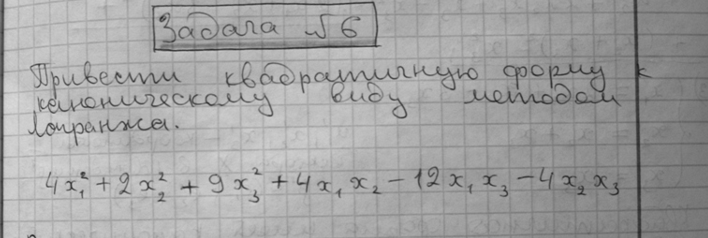 Задача №6
Привести квадратичную форму к
каноническому виду методом
Лагранжа.
4x₁² + 2x₂² + 9x₃² + 4x₁x₂ − 12x₁x₃ − 4x₂x₃